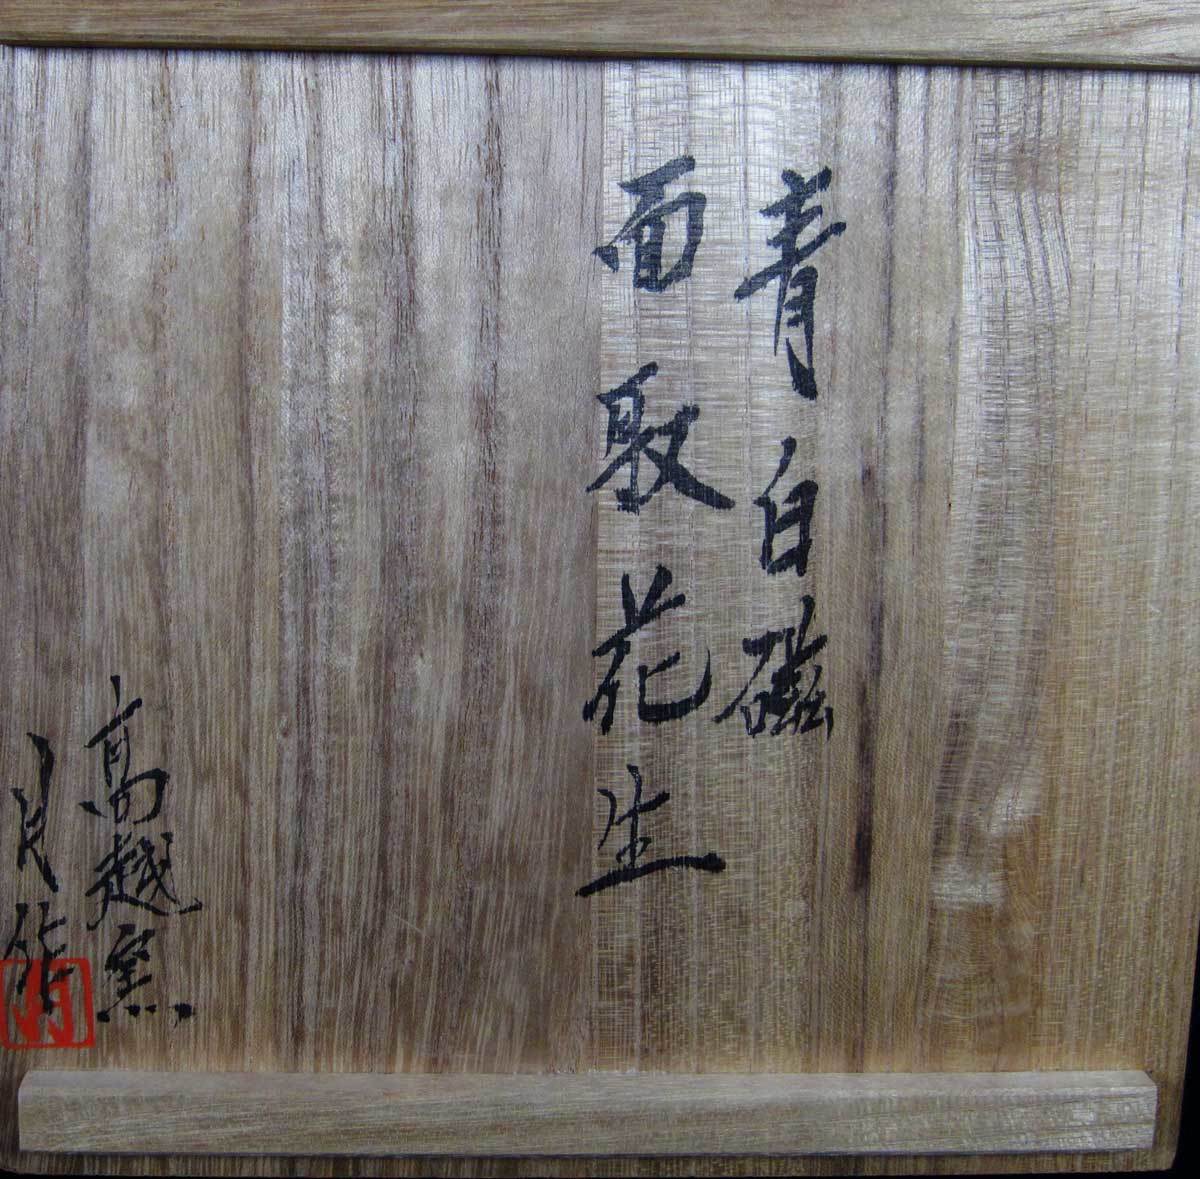 青白磁
面取花生
高越窯
作